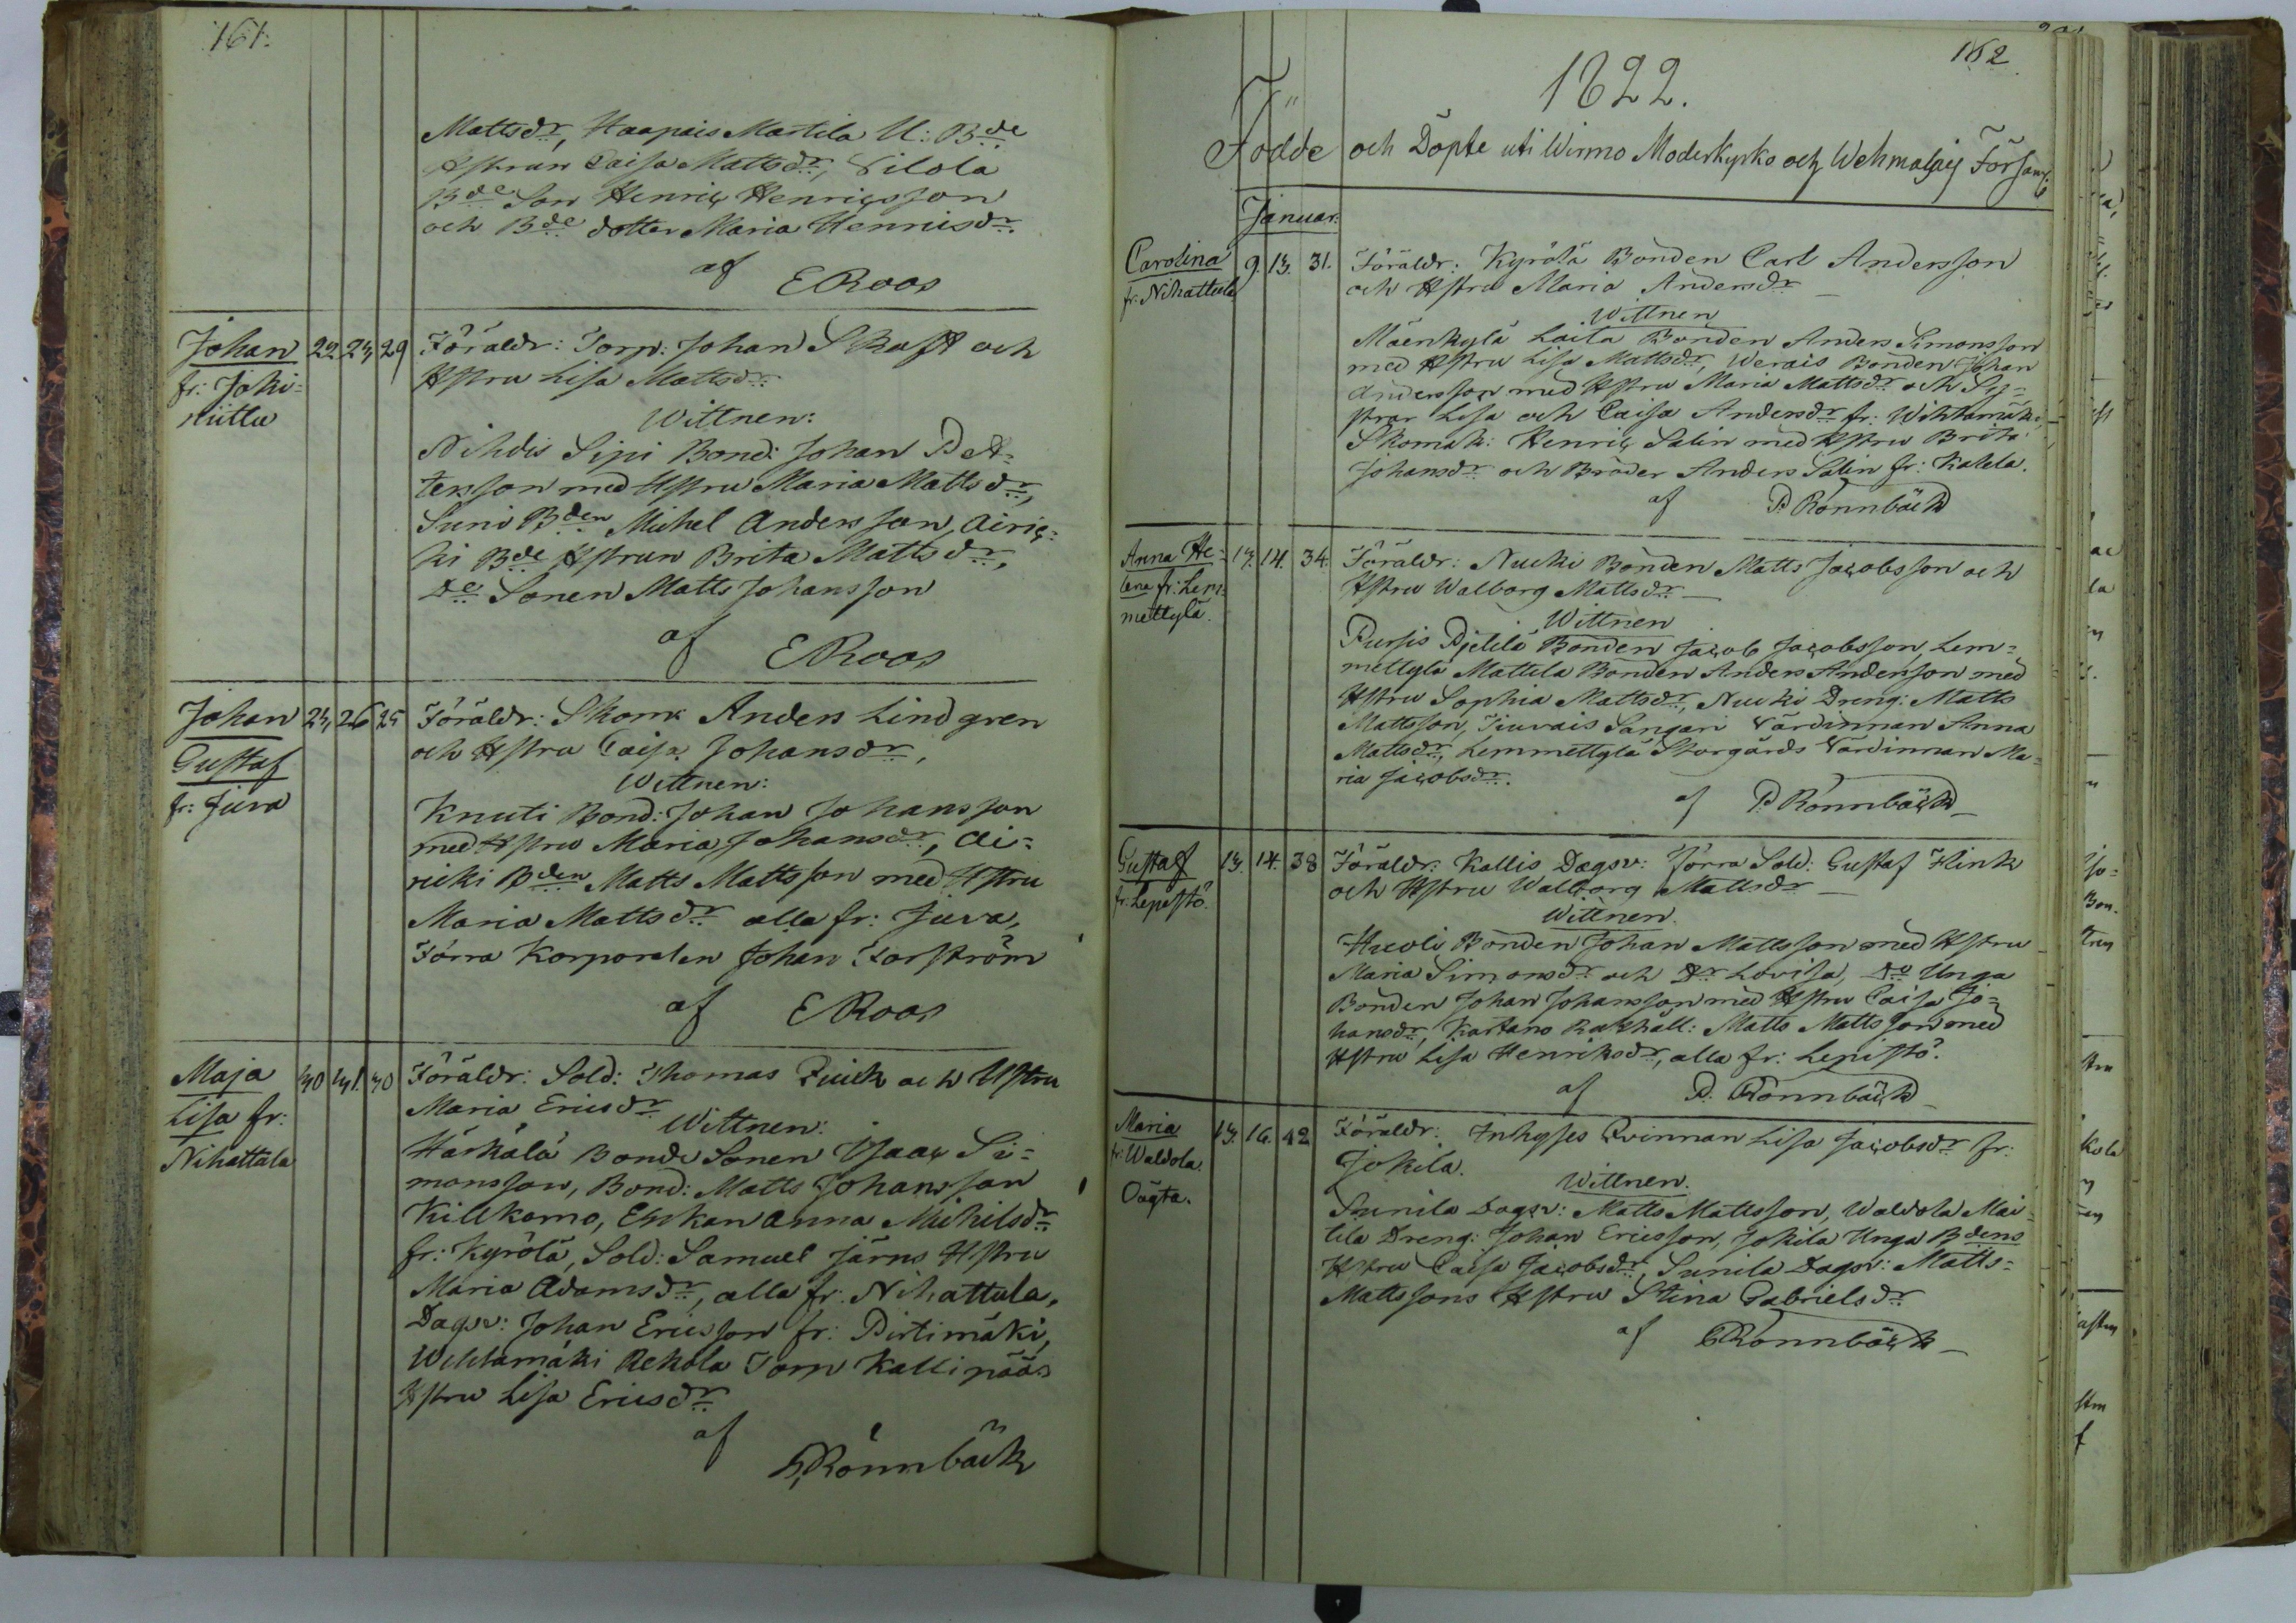 161.
Mattsdr, Haapais Mattila U: Bde
Hstrun Caisa Mattsdr, Vilola
Bde Son Henric Henricsson
och Bde dotter Maria Henricsdr.
af E Roos
Johan 22 23 29 Föräldr: Torp: Johan Skaft och
fr: Joki- Hstru Lisa Mattsdr
niittu
Wittnen:
Nihdis Sipi Bond: Johan Pet-
terson med Hstru Maria Mattsdr,
Suni Bden Michel Andersson, Airic-
ki Bde Hstrun Brita Mattsdr,
De Sonen Matts Johansson
af E Roos
Johan 24 26 25 Föräldr: Skom: Anders Lindgren
Gustaf och Hstru Caisa Johansdr,
fr: Jura
Wittnen:
Knuti Bond: Johan Johansson
med Hstru Maria Johansdr, Ai-
ricki Bden Matts Mattsson med Hstru
Maria Mattsdr alla fr: Jura,
Förra Korporalen Johan Forström
af E Roos
Maja 30 31. 30 Föräldr: Sold: Thomas och Hstru
Lisa fr: Maria Ericsdr
Nihattula
Wittnen:
Härkälä Bonde Sonen Isaac Si-
monsson, Bond: Matts Johansson
Killkomo, Enkan Anna Michelsdr
fr: Kyrölä, Sold: Samuel Järns Hstru
Maria Adamsdr, alla fr: Nihattula,
Dagsv: Johan Ericsson fr: Pirtimäki,
Wehtamäki Rekola Torp Kallipää
Hstru Lisa Ericsdr
af
P. Rönnbäck
162
1822.
Födde och Döpte uti Wirmo Moderkyrko och Församl:
Januar:
Carolina 9. 13. 31. Föräldr: Kyrölä Bonden Carl Andersson
fr: Nihattula och Hstru Maria Andersdr
Wittnen
Mäenkylä Laila Bonden Anders Simonsson
med Hstru Lisa Mattsdr, Werais Bonden Johan
Andersson med Hstru Maria Mattsdr och Sy-
strar Lisa och Caisa Andersdr fr: Wihtamäki,
Skomak: Henric Salin med Hstru Brita
Johansdr och Broder Anders Salin fr: Kalela.
af P. Rönnbäck
Anna He- 13. 14. 34. Föräldr: Nucki Bonden Matts Jacobsson och
lena fr: Lem- Hstru Walborg Mattsdr
mettylä.
Wittnen
Bonden Jacob Jacobsson, Lem-
mettylä Mattila Bonden Anders Andersson med
Hstru Sophia Mattsdr, Nucki Dreng: Matts
Mattsson, Sangari Värdinnan Anna
Mattsdr, Lemmettylä Skorgårds Värdinnan Ma-
ria Jacobsdr.
af P. Rönnbäck
Gustaf 13. 14. 38 Föräldr: Kallis Dagsv: Förra Sold: Gustaf Flink
fr: Lepistö. och Hstru Walborg Mattsdr
Wittnen.
Huoli Bonden Johan Mattsson med Hstru
Maria Simonsdr och Dr Lovisa, De Unga
Bonden Johan Johansson med Hstru Caisa Jo-
hansdr, Kartano Matts Mattsson med
Hstru Lisa Henriksdr, alla fr: Lepistö.
af P. Rönnbäck
Maria 13. 16. 42 Föräldr: Inhyses Qvinnan Lisa Jacobsdr fr:
fr: Waldola. Jokila.
Oägta.
Wittnen.
Sunila Dagsv: Matts Mattsson, Waldola Mai-
tila Dreng: Johan Ericsson, Jokila Unga Bdens
Hstru Caisa Jacobsdr, Sunila Dagsv: Matts
Mattssons Hstru Stina Gabrielsdr
af P. Rönnbäck